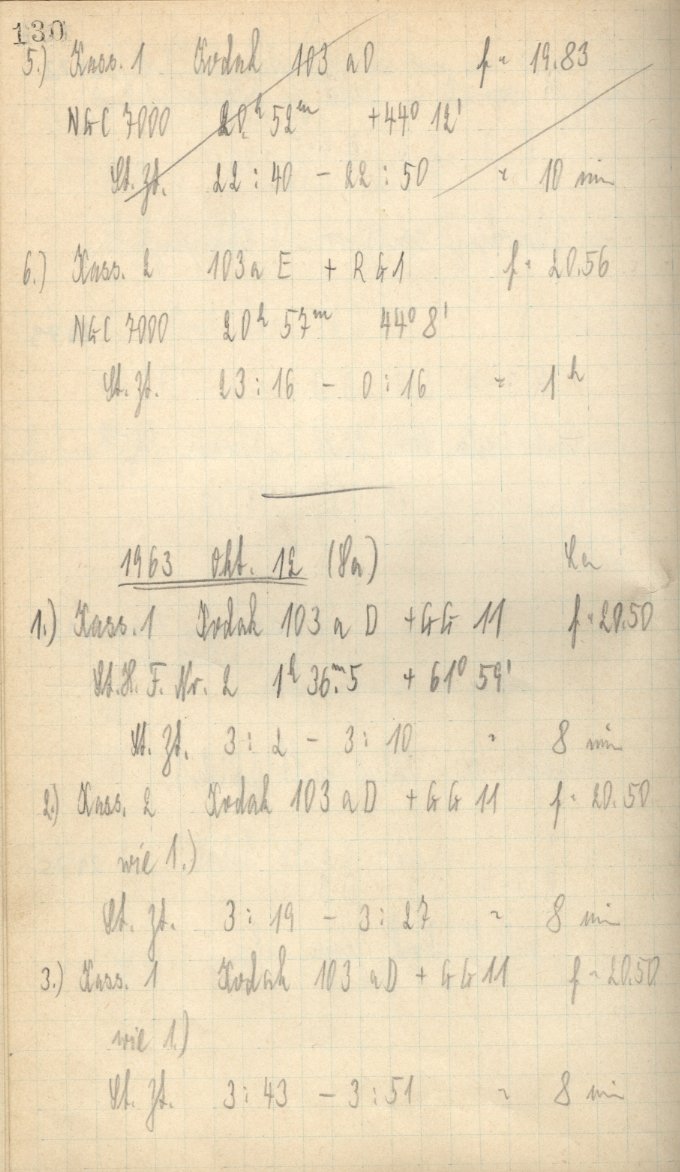 130
5.) Kass. 1 Kodak 103 aD f = 19.83
NGC 7000 20h 52m +44° 12'
St. Zt. 22:40 – 22:50 = 10 min
6.) Kass. 2 103a E + RG1 f = 20.56
NGC 7000 20h 57m 44° 8'
St. Zt. 23:16 – 0:16 = 1h
1963 Okt. 12 (Sa)
1.) Kass. 1 Kodak 103 a D +GG 11 f = 20.50
St. H. F. Nr. 2 1h 36m.5 + 61° 59'
St. Zt. 3:2 – 3:10 = 8 min
2.) Kass. 2 Kodak 103 aD +GG 11 f = 20.50
wie 1.)
St. Zt. 3:19 – 3:27 = 8 min
3.) Kass. 1 Kodak 103 aD + GG 11 f = 20.50
wie 1.)
St. Zt. 3:43 – 3:51 = 8 min